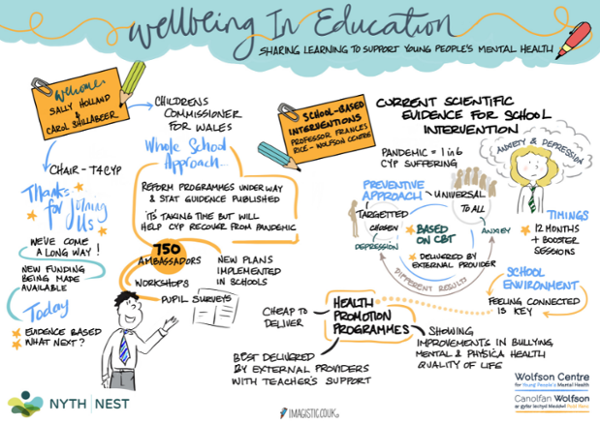 Wellbeing In Education
SHARING LEARNING TO SUPPORT YOUNG PEOPLE'S MENTAL HEALTH
Welcome
SALLY HOLLAND
&
CAROL SHILLABEER
CHILDRENS
COMMISSIONER
FOR WALES
CHAIR - T4CYP
Thanks
for Joining
Us
WE'VE COME
A LONG WAY!
NEW FUNDING
BEING MADE
AVAILABLE
Today
EVIDENCE BASED
WHAT NEXT?
Whole School
Approach...
REFORM PROGRAMMES UNDERWAY
& STAT GUIDENCE PUBLISHED
ITS TAKING TIME BUT WILL
HELP CYP RECOVER FROM PANDEMIC
750
AMBASSADORS
WORKSHOPS
PUPIL SURVEYS
NEW PLANS
IMPLEMENTED
IN SCHOOLS
SCHOOL-BASED
INTERVENTIONS
PROFESSOR FRANCES
RICE - WOLFSON CENTRE
CURRENT SCIENTIFIC
EVIDENCE FOR SCHOOL
INTERVENTION
PANDEMIC = 1 in 6
CYP SUFFERING
ANXIETY & DEPRESSION
PREVENTIVE
APPROACH
UNIVERSAL
TO ALL
TARGETTED
CHOSEN
DEPRESSION
BASED
ON CBT
ANXIETY
DELIVERED BY
EXTERNAL PROVIDER
DIFFERENT RESULTS
TIMINGS
12 MONTHS
+ BOOSTER
SESSIONS
SCHOOL
ENVIRONMENT
FEELING CONNECTED
IS KEY
HEALTH
PROMOTION
PROGRAMMES
CHEAP TO
DELIVER
BEST DELIVERED
BY EXTERNAL PROVIDERS
WITH TEACHER'S SUPPORT
SHOWING
IMPROVEMENTS IN BULLYING
MENTAL & PHYSICAL HEALTH
QUALITY OF LIFE
NYTH | NEST
IMAGISTIC.CO.UK
Wolfson Centre
for Young People's Mental Health
Canolfan Wolfson
ar gyfer Iechyd Meddwl Pobl Ifanc